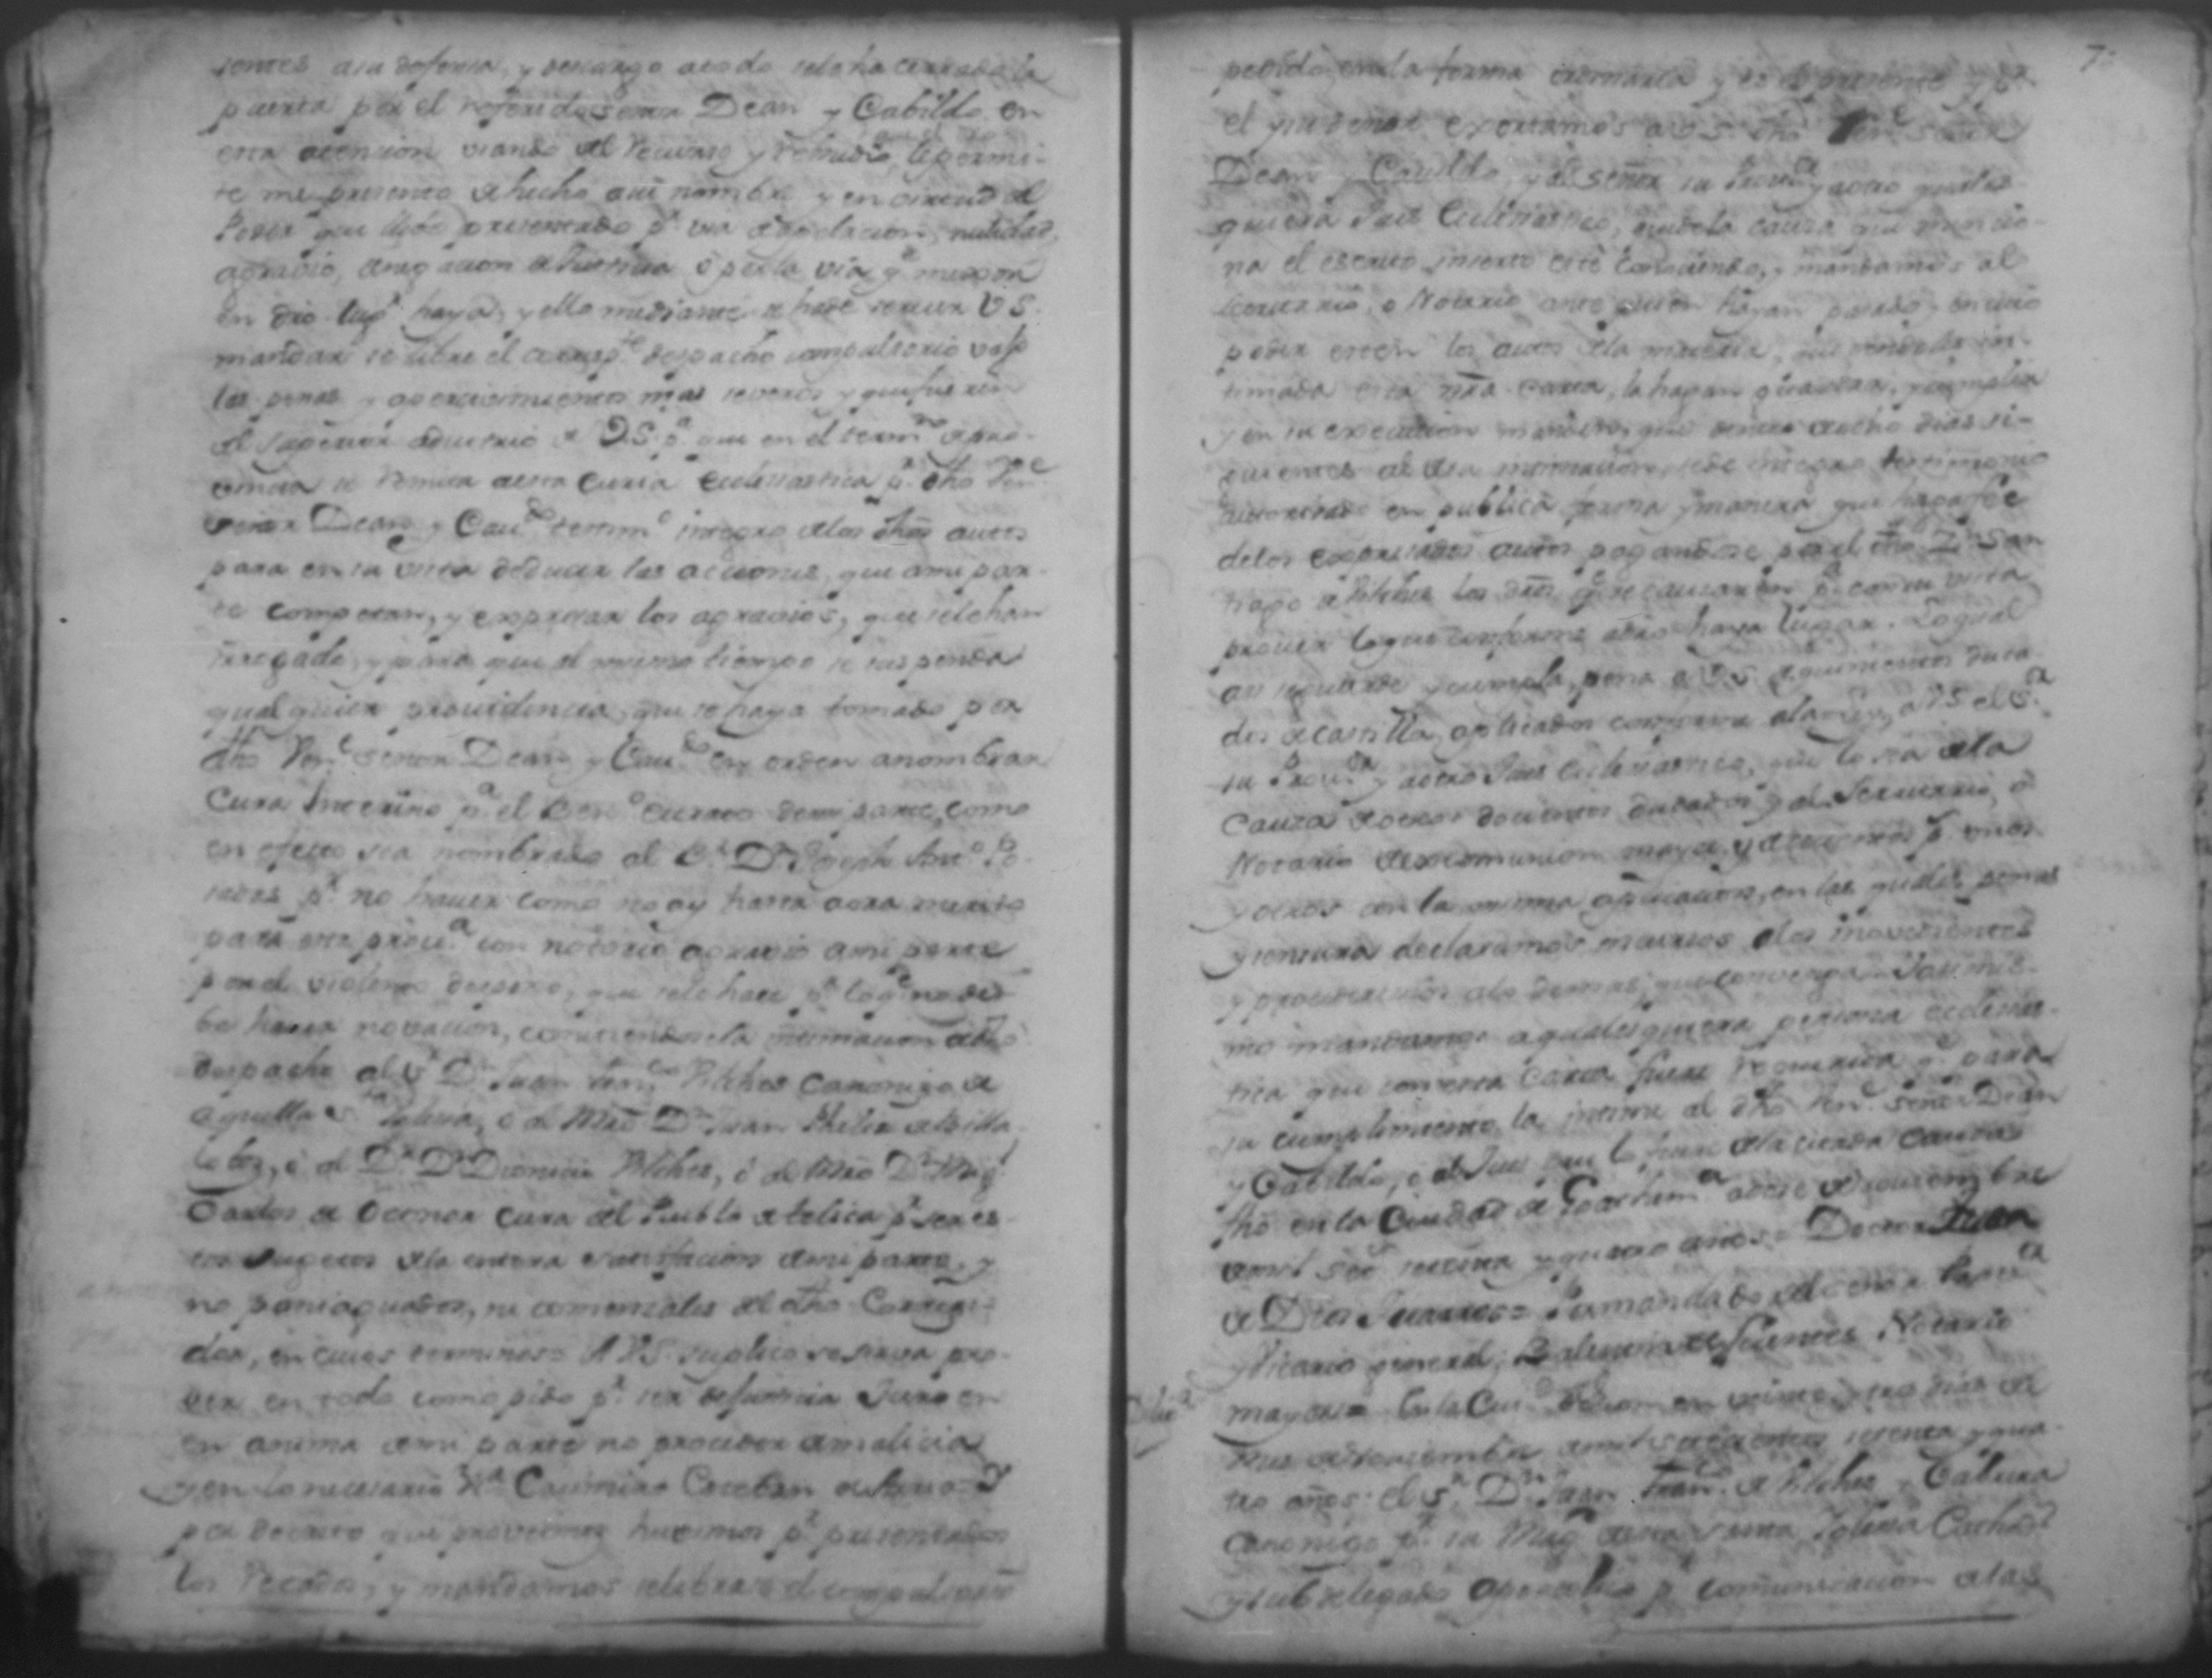 sentes a su defensa, y descargo a todo sele ha cerrado la
puerta por el referido señor Dean y Cabildo en
esta atencion usando del recurso y remedio le permi-
te me presento de hecho a su nombre y en virtud del
Poder que dejo presentado pr via de apelacion, nulidad,
agravio, denegacion de Justicia ò por la via qe mejor
en dro lugr haya, y ello mediante se hade servir VS.
mandar se libre el corresp.te despacho compulsorio vajo
las penas y apercivimientos mas severos y que fueren
del superior advitrio de VS. pa. que en el termno
se remita a esta Curia Eclesiastica pr. dho Vene
señor Dean y Caudo testimo integro de los dhos autos
para en su vista deducir las acciones, que a mi par-
te competan, y expresar los agravios, que sele han
irrogado, y para que al mismo tiempo se suspenda
qualquier providencia, que se haya tomado por
dho Vene señor Dean y Caudo en orden a nombrar
Cura Interino pa el Beno curato de mi parte, como
en efecto sea nombrado al Br. Dn Joseph Anto
pr no haver como no ay hasta aora merito
para esta provida con notorio agravio a mi parte
por el violento despojo, que sele hace pr lo qe no de-
be haver novacion, cometiendose la intimacion de dho
despacho al Sr Dn Juan Franco Vilches Canonigo de
aquella Sta Iglesia, ò al Mro Dn Juan Phelix de Villa
lobos, ò al Dr Dn Dionicio Vilches, ò al Mro Dn Migl
Carlos de Oconor cura del Pueblo de Telica pr ser es-
tos sugetos de la entera satisfacion de mi parte, y
no paniaguados, ni comensales del dho Corregi-
dor, en cuios terminos = A VS. suplico se sirva pro-
ver en todo como pido pr ser de justicia Juro en
en anima de mi parte no proceder de malicia
y en lo necesario &a Casimiro Esteban de
por decreto que proveimos huvimos pr presentados
los Recados, y mandamos se librase el compulsorio
pedido en la forma ordinaria y es el presente y por
el qual exortamos a V.S. dho Vene señor
Dean y Cavildo, y al señor su Provisa y a otro quales
quiera Juez Eclesiastico, que de la causa que mencio-
na el escrito inserto esté conociendo, y mandamos al
secretario, o Notario ante quien hayan pasado, en cuio
poder esten los autos de la materia, que siendole in-
timada esta nra carta, la hagan guardar, y cumplir
y en su execucion manden, que dentro de ocho dias si-
guientes al de la intimacion, se de integro testimonio
authorizado en publica forma y manera que haga fee
de los expresados autos pagandose por el dho Dn San
tiago de Vilches los dros qe se causaren pa con su vista
proveer lo que conforme a dro haya lugar. Lo qual
asi se guarde y cumpla, pena a VS. de quinientos duca
dos de castilla, aplicados conforme a la a VS el Sr
su Provisa y a otro Juez Eclesiastico, que lo sea de la
Causa de otros docientos ducados y al Secretario, ò
Notario de excomunion mayor, y docientos ps unos
y otros con la misma aplicacion, en las quales penas
y censuras declaramos incursos a los inovedientes
y procederemos a lo demas, que convenga. Y asimis-
mo mandamos a qualesquiera persona eclesias-
tica que con esta Carta fuere requerida qe para
su cumplimiento la intime al dho Vene señor Dean
y Cabildo, o al Juez que lo fuere de la citada causa
fho en la Ciudad de Goathema a doce de Noviembre
de mil setesc setenta y quatro años = Doctor Juan
de Dios Juarros = Por mandado del señor Provisa
y Vicario general, de Fuentes Notario
mayor = En la Ciud de Leon en veinte y tres dias del
Dilia
mes de Noviembre de mil setecientos setenta y qua-
tro años el Sr. Dn Juan Franco de Vilches y Cabrera
Canonigo pr su Magd de esta Santa Iglesia Cathedl
y subdelegado Apostolico pa comunicacion de las